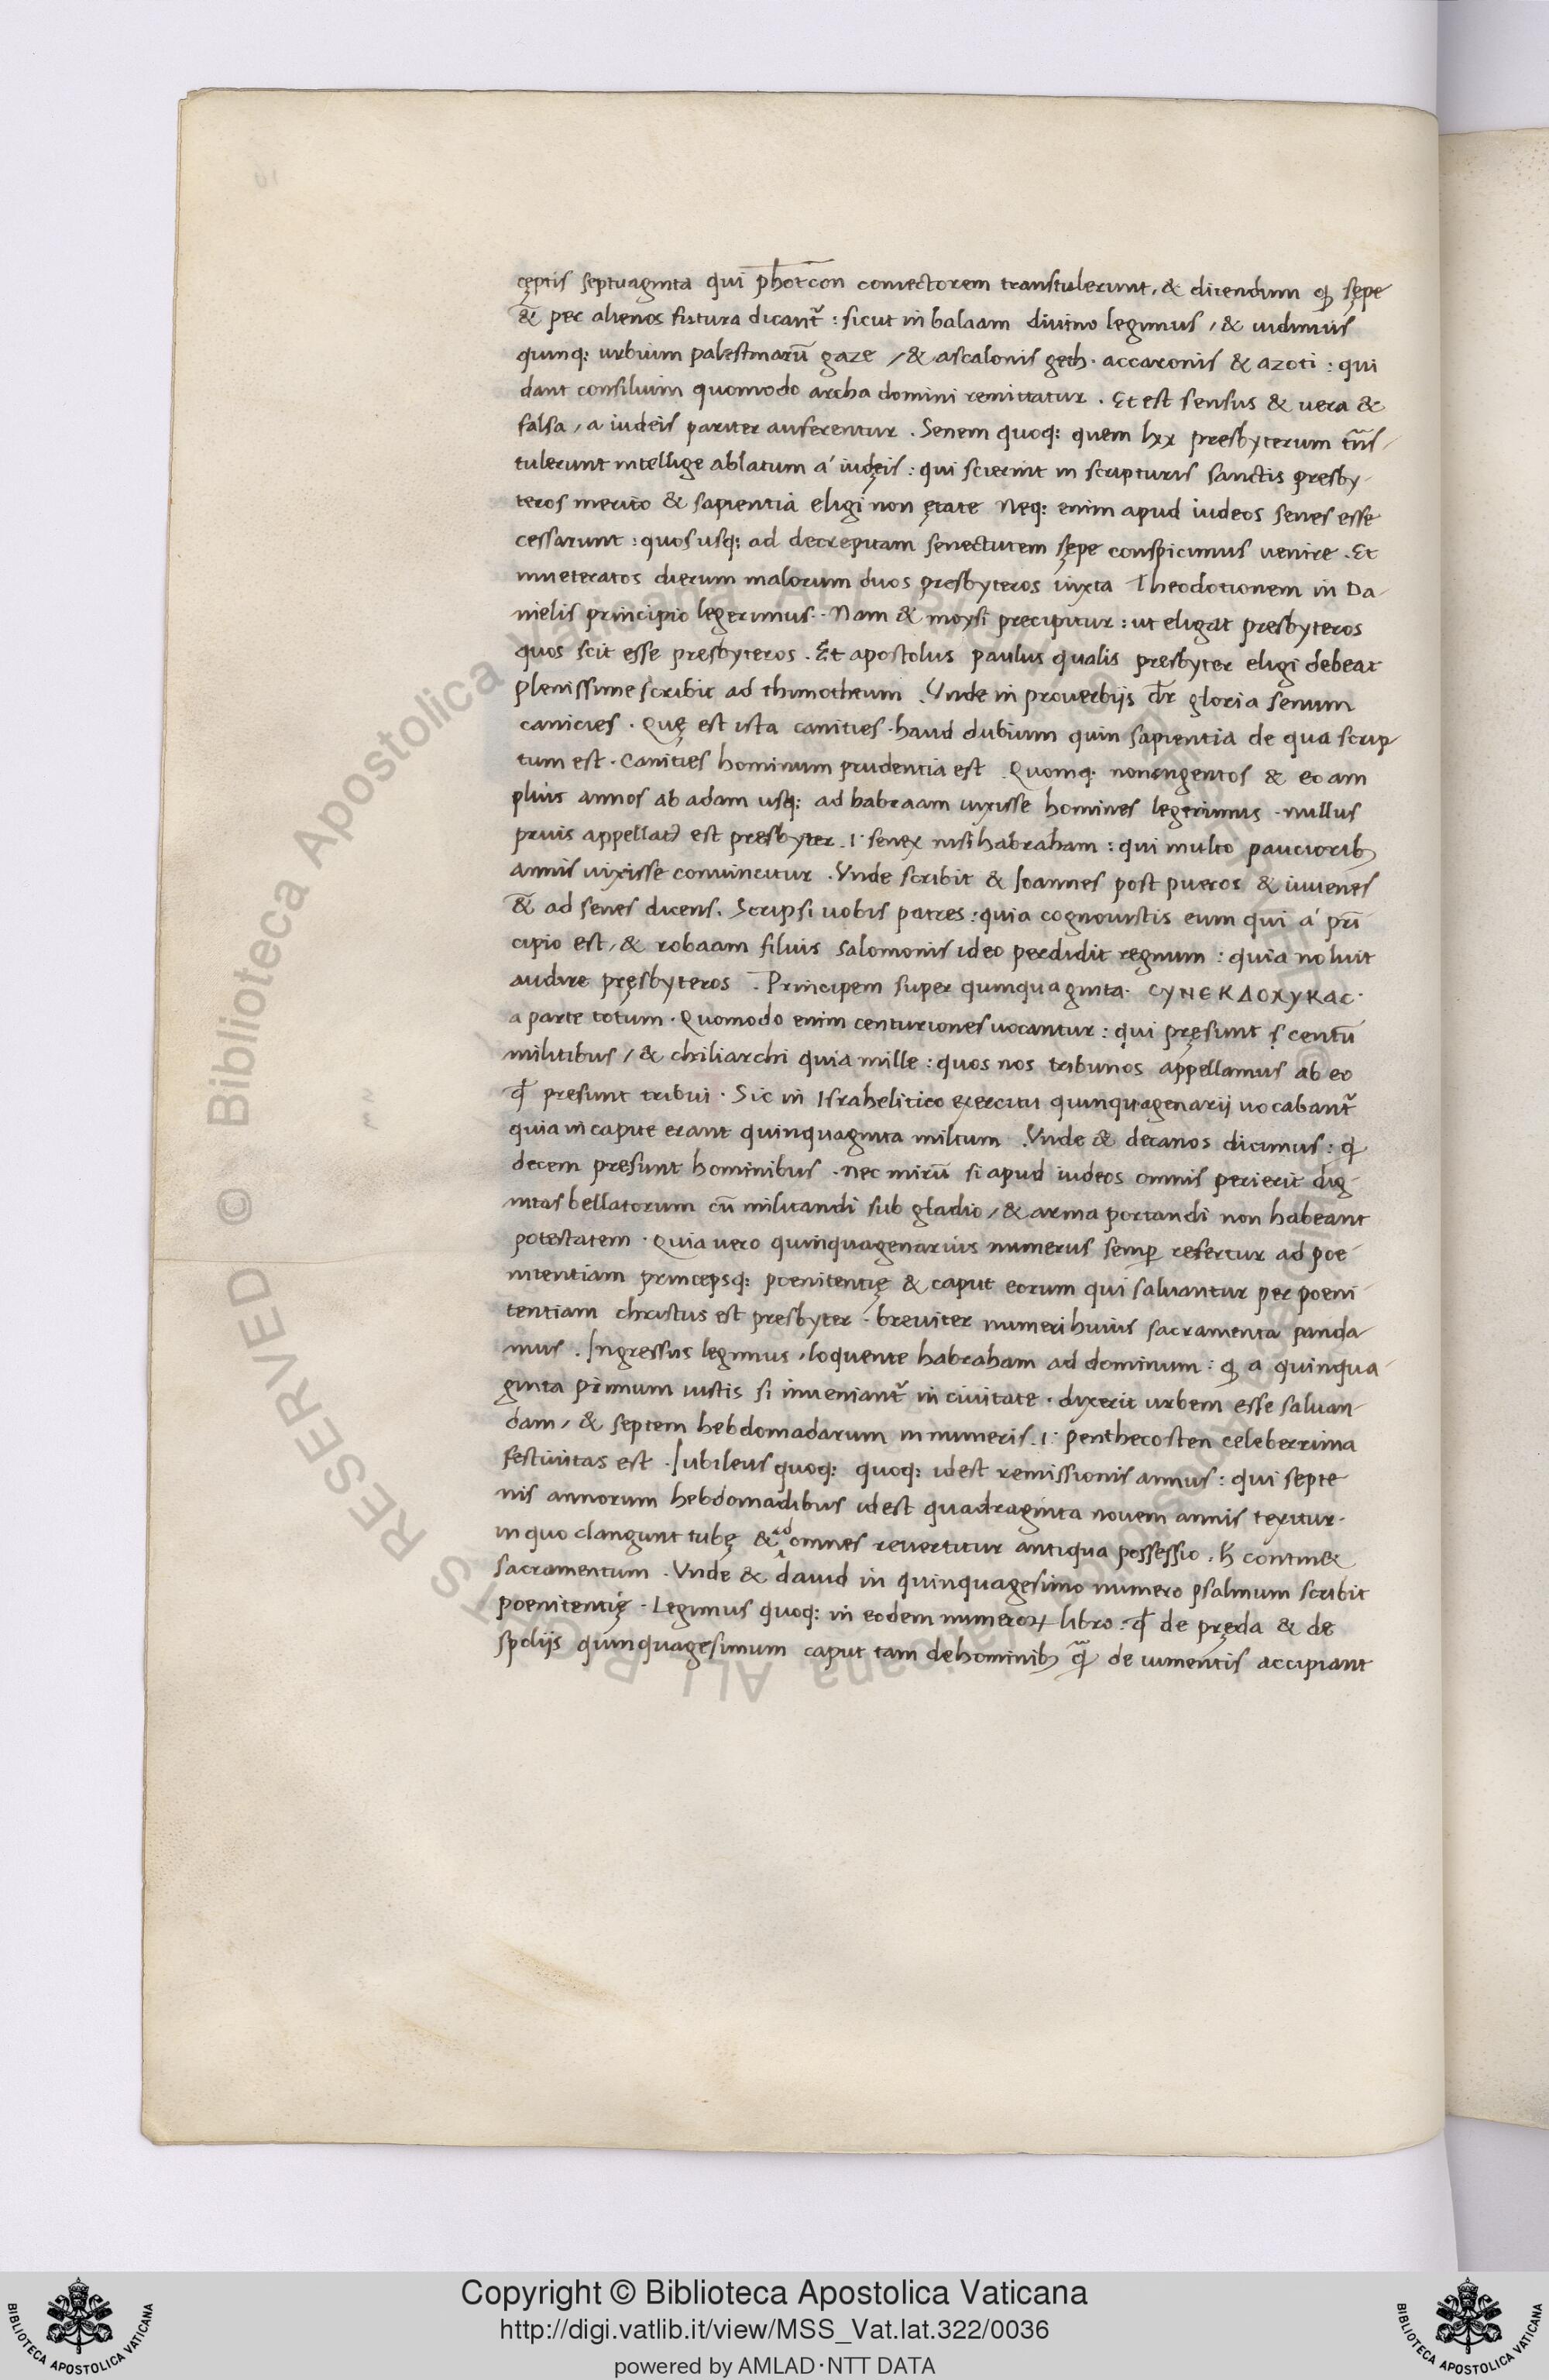 cęptis septuaginta qui phōtcon coniectorem transtulerunt, & dicendum ꝙ sępe
& per alienos futura dicant᷑ : sicut in balaam diuino legimus / & uidimus
quinq: urbium palestinarū gaze / & ascalonis geth · accaronis & azoti : qui
dant consilium quomodo archa domini remittatur . Et est sensus & uera &
falsa / a iudeis pariter auferentur . Senem quoq: quem lxx presbyterum trās-
tulerunt intellige ablatum á iudęis : qui scierint in scripturis sanctis presby-
teros merito & sapientia eligi non ętate Neq: enim apud iudeos senes esse
cessarunt : quos usq: ad decrepitam senectutem sępe conspicimus uenire . Et
inueteratos dierum malorum duos presbyteros iuxta Theodotionem in Da-
nielis principio legerimus · Nam & moysi precipitur : ut eligat presbyteros
quos scit esse presbyteros . Et apostolus paulus qualis presbyter eligi debeat
plenissime scribit ad thimotheum . Vnde in prouerbijs dr̄ gloria senum
canicies . Quę est ista canities · haud dubium quin sapientia de qua scrip
tum est · Canities hominum prudentia est . Quomq: nongentos & eo am
plius annos ab adam usq: ad habraam uixisse homines legerimus · nullus
prius appellatꝰ est presbyter .i· senex nisi habraham : qui multo paucioribꝰ
annis uixisse conuincitur . Vnde scribit & Ioannes post pueros & iuuenes
& ad senes dicens . Scripsi uobis patres : quia cognouistis eum qui á prī
cipio est / & robaam filius salomonis ideo perdidit regnum : quia noluit
audire pręsbyteros . Principem super quinquaginta · CYNEKΔOXYKac ·
a parte totum · Quomodo enim centuriones uocantur : qui pręsunt centū
militibus / & chiliarchi quia mille : quos nos tribunos appellamus ab eo
qđ presunt tribui · Sic in Israhelitico exercitu quinquagenarij uocabant᷑
quia in capite erant quinquaginta militum . Vnde & decanos dicimus : qđ
decem presunt hominibus . nec mirū si apud iudeos omnis perierit dig-
nitas bellatorum cū militandi sub gladio / & arma portandi non habeant
potestatem · Quia uero quinquagenarius numerus semꝑ refertur ad poe
nitentiam princepsq: poenitentię & caput eorum qui saluantur per poeni-
tentiam christus est presbyter · breuiter numeri huius sacramenta panda-
mus . Ingressus legimus , loquente habraham ad dominum : ꝙ a quinqua-
ginta primum iustis si inueniant᷑ in ciuitate · dixerit urbem esse saluan-
dam / & septem hebdomadarum in numeris .i· penthecosten celeberrima
festiuitas est . Iubileus quoq: quoq: idest remissionis annus : qui septe
nis annorum hebdomadibus idest quadraginta nouem annis texitur ·
in quo clangunt tubę & ad omnes reuertitur antiqua possessio . h̄ contin&
sacramentum . Vnde & dauid in quinquagesimo numero psalmum scribit
poenitentię . Legimus quoq: in eodem numeroꝝ libro : qđ de pręda & de
spolijs quinquagesimum caput tam de hominibꝰ q̃ de iumentis accipiant
Copyright © Biblioteca Apostolica Vaticana
http://digi.vatlib.it/view/MSS_Vat.lat.322/0036
powered by AMLAD·NTT DATA